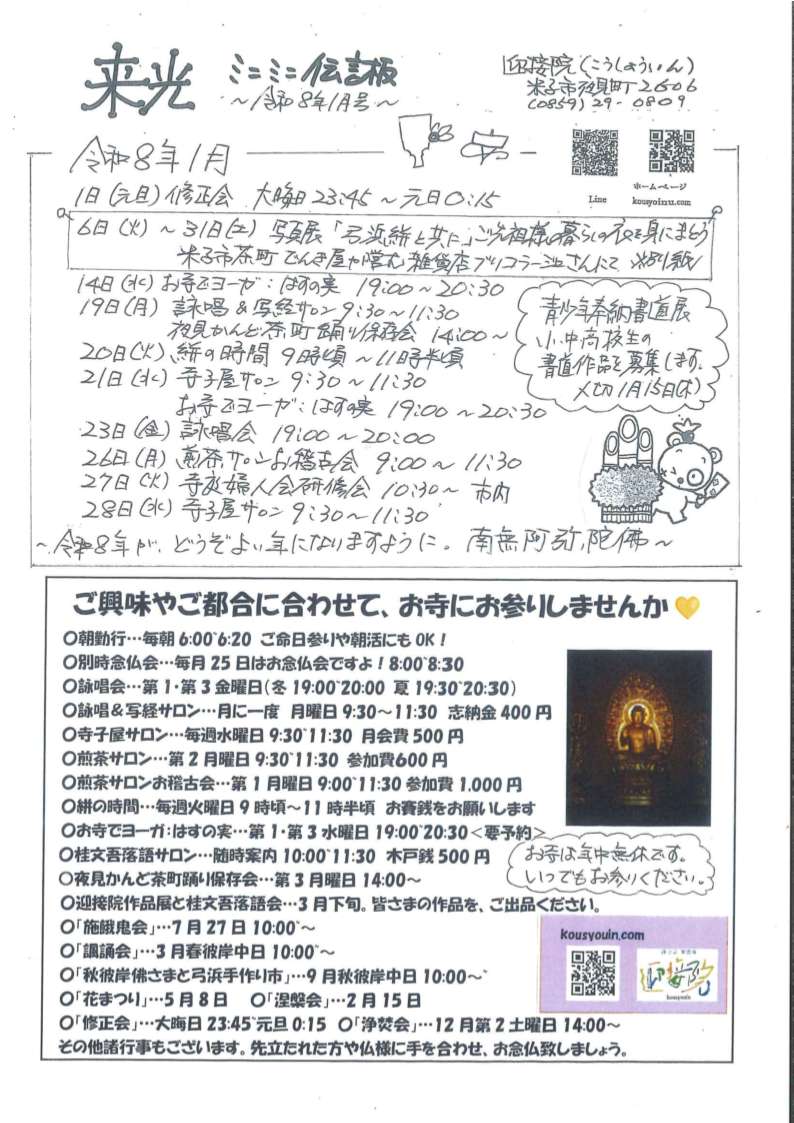 来光 ミニミニ伝言板
～令和8年1月号～
迎接院(こうしょういん)
米子市夜見町2606
(0859)29-0809
Line
ホームページ
kousyoinu.com
令和8年1月
1日(元旦)修正会 大晦日23:45～元日0:15
6日(火)～31日(土) 写真展「弓浜絣と共に」ご先祖様の暮らしの衣を身にまとう
米子市茶町 でんき屋が営む雑貨店ブリコラージュさんにて ※別紙
14日(水)お寺でヨーガ:はすの実 19:00～20:30
19日(月) 詠唱&写経サロン 9:30～11:30
夜見かんど茶町踊り保存会 14:00～
20日(火)絣の時間 9時頃～11時半頃
21日(水) 寺子屋サロン 9:30～11:30
お寺でヨーガ:はすの実 19:00～20:30
23日(金) 詠唱会 19:00～20:00
26日(月) 煎茶サロンお稽古会 9:00～11:30
27日(火) 寺庭婦人会研修会 10:30～ 市内
28日(水) 寺子屋サロン 9:30～11:30
青少年奉納書道展
小中高校生の
書道作品を募集します。
〆切1月15日(木)
～令和8年が、どうぞよい年になりますように。南無阿弥陀佛～
ご興味やご都合に合わせて、お寺にお参りしませんか💛
〇朝勤行…毎朝6:00~6:20 ご命日参りや朝活にもOK!
〇別時念仏会…毎月25日はお念仏会ですよ!8:00~8:30
〇詠唱会…第1・第3金曜日(冬19:00~20:00 夏19:30~20:30)
〇詠唱&写経サロン…月に一度 月曜日9:30～11:30 志納金400円
〇寺子屋サロン…毎週水曜日9:30~11:30 月会費500円
〇煎茶サロン…第2月曜日9:30~11:30 参加費600円
〇煎茶サロンお稽古会…第1月曜日9:00~11:30 参加費1.000円
〇絣の時間…毎週火曜日9時頃～11時半頃 お賽銭をお願いします
〇お寺でヨーガ:はすの実…第1・第3水曜日19:00~20:30<要予約>
〇桂文吾落語サロン…随時案内10:00~11:30 木戸銭500円
〇夜見かんど茶町踊り保存会…第3月曜日14:00～
〇迎接院作品展と桂文吾落語会…3月下旬。皆さまの作品を、ご出品ください。
〇「施餓鬼会」…7月27日10:00~～
〇「諷誦会」…3月春彼岸中日10:00~～
〇「秋彼岸佛さまと弓浜手作り市」…9月秋彼岸中日10:00～~
〇「花まつり」…5月8日 〇「涅槃会」…2月15日
〇「修正会」…大晦日23:45~元旦0:15 〇「浄焚会」…12月第2土曜日14:00～
その他諸行事もございます。先立たれた方や仏様に手を合わせ、お念仏致しましょう。
お寺は年中無休です。
いつでもお参りください。
kousyouin.com
迎接院
kousyouin